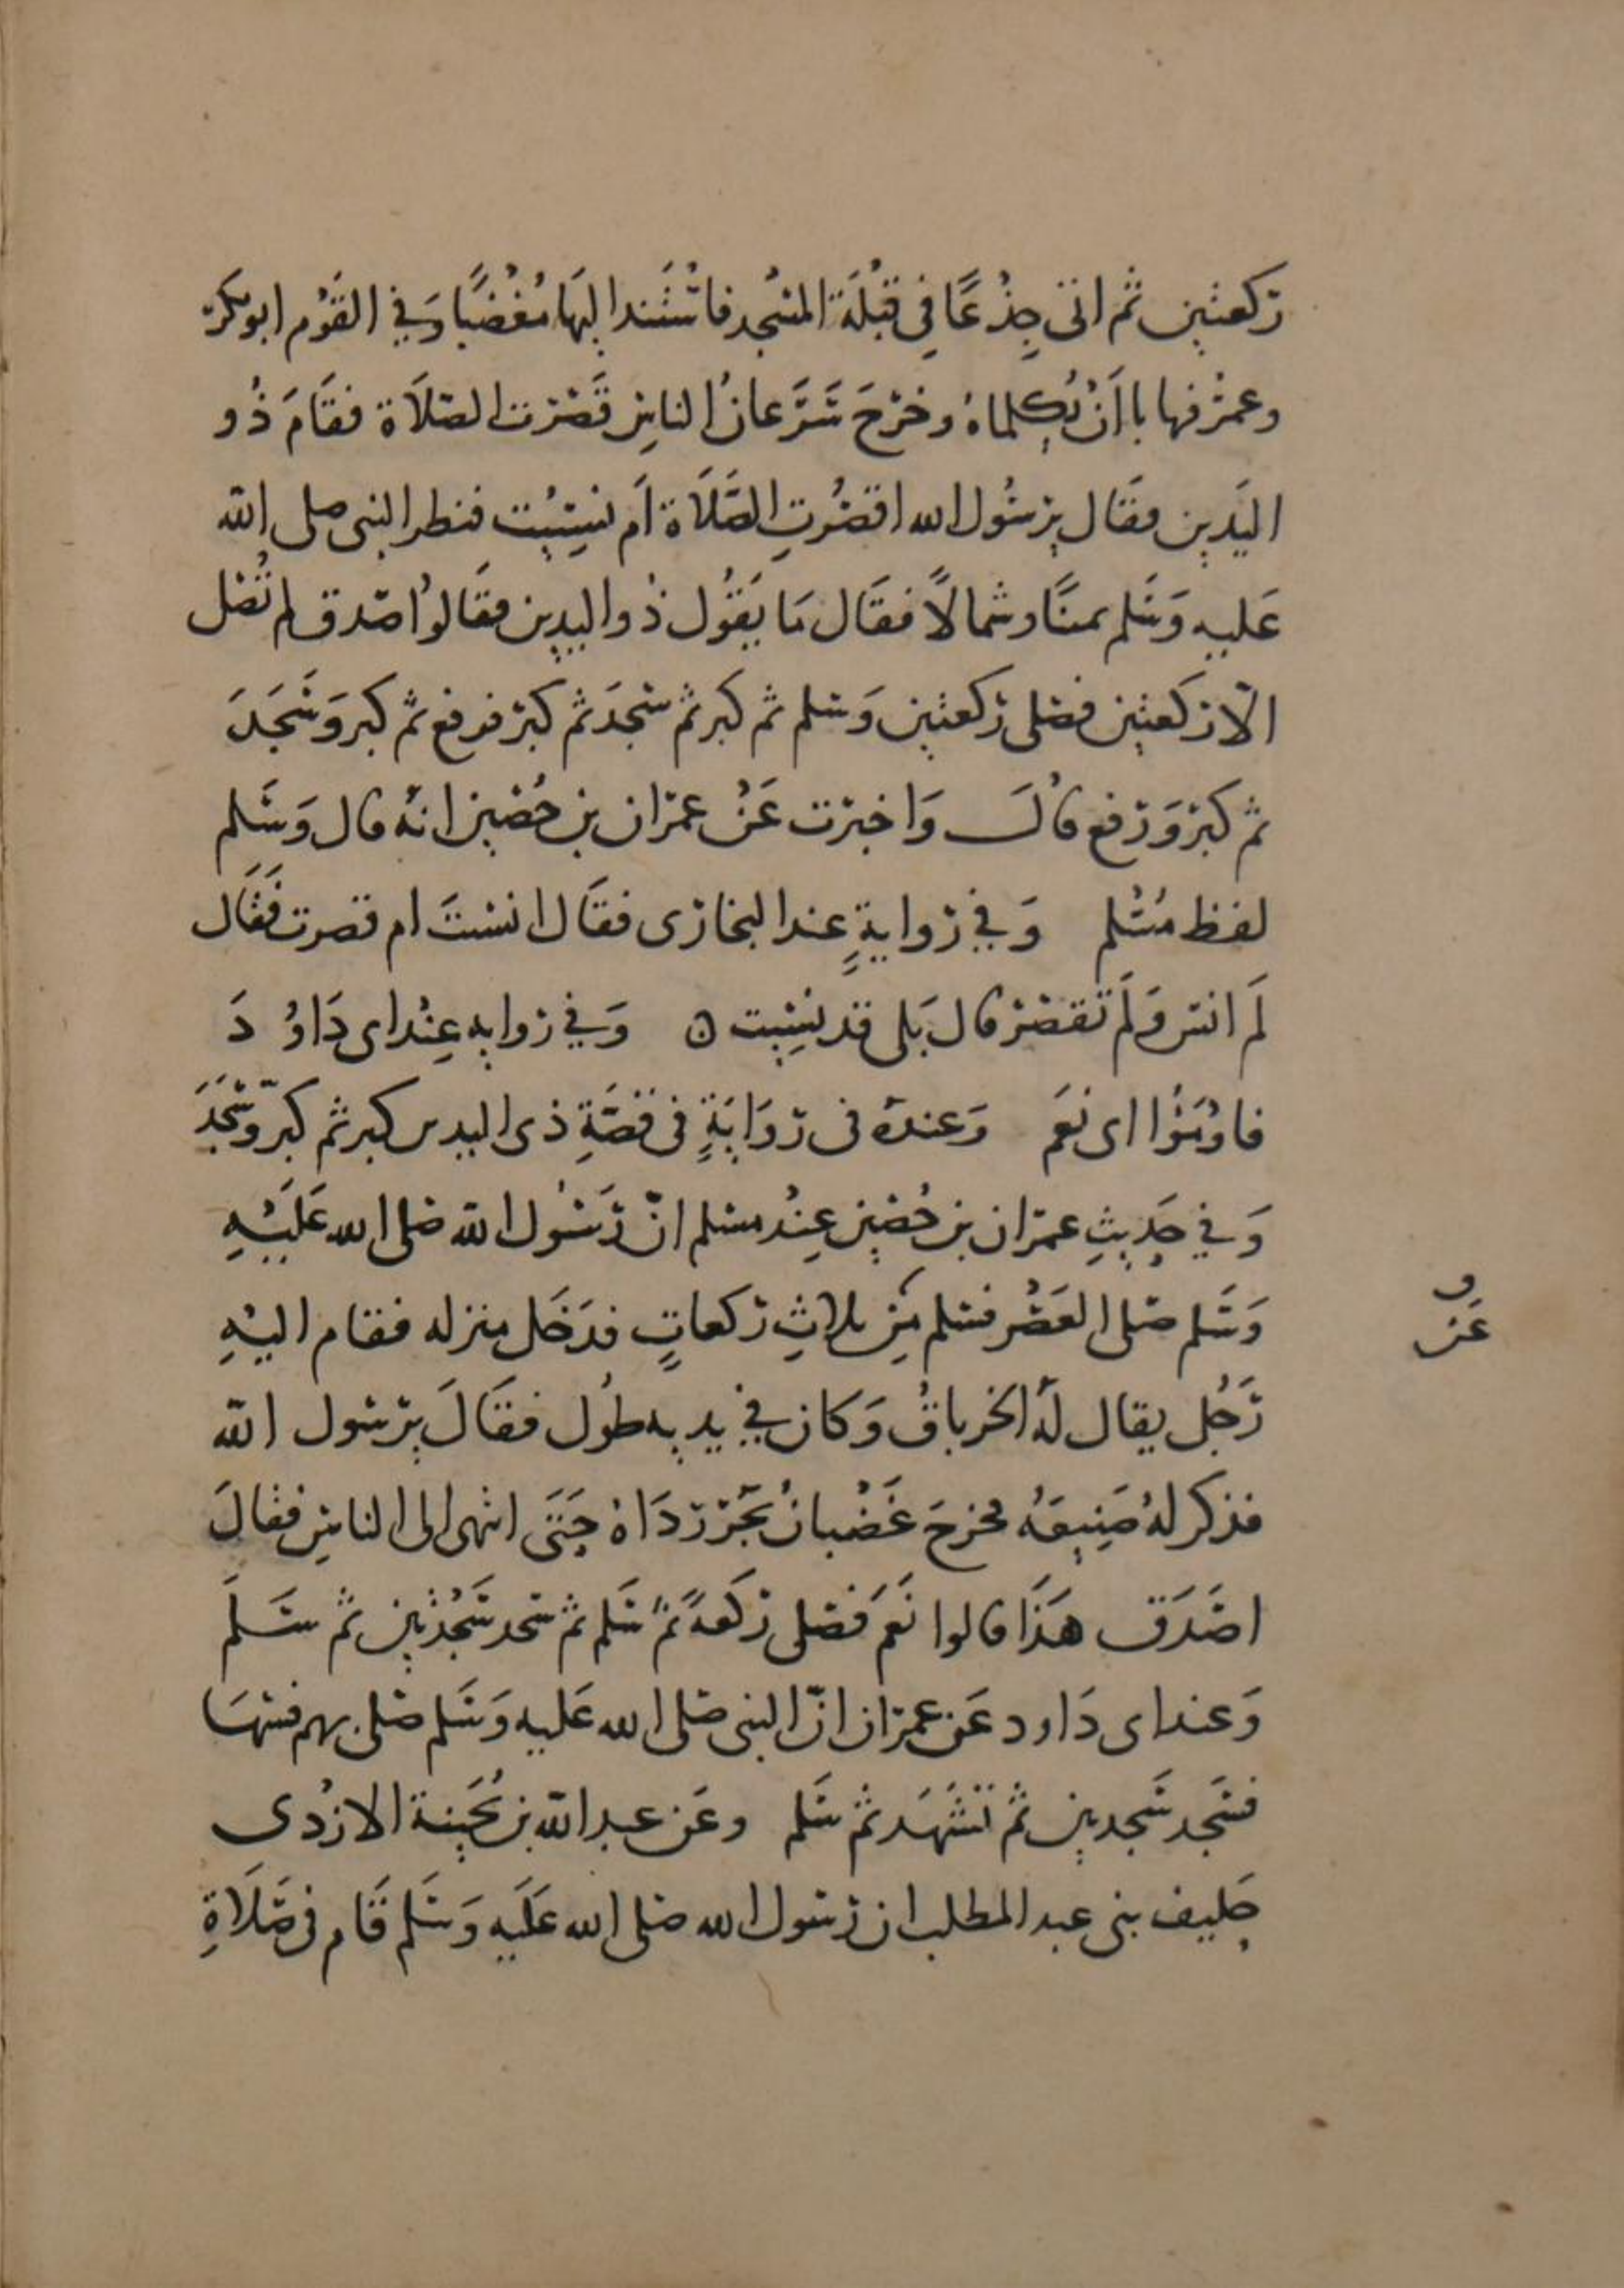 ركعتين ثم اتى جِذْعًا فِي قبْلَة المسْجد فاسْتَند اليهَا مُغْضبًا وَفي القَوْم ابو بكرٍ
وعمرُ فهابا اَنْ يُكلماهُ وخرَج سَرَعانُ الناسِ قَصُرت الصّلَاة فقَامَ ذُو
اليَدين فقَال يرسُول الله اقصُرتِ الصَّلَاة اَم نسِيْت فنطر النبى صلى الله
عَليه وَسَلم يمينًا وشمالًا فقَال مَا يَقُول ذُو اليدين فقَالوُا صَدق لم تُصَل
الّا ركعتين فصَلى ركعتين وَسلم ثم كبر ثم سَجدَ ثم كبّر فرفع ثم كبر وَسَجَدَ
ثم كبّر وَرَفع قاَلَ وَاخبرت عَنْ عمرَان بن حُصَين انهُ قال وَسَلم
لفظ مُسْلم وَفي روايةٍ عند البخارى فقَال انسيتَ ام قصرت فَقَال
لَم انس وَلَم تقصر قال بَلى قد نسِيْت ن وَفي روايه عِنْد اى دَاوُ دَ
فاوْمَؤا اى نعَم وَعندهُ فى روَايَةٍ فى قصَّةِ ذى اليدين كبر ثم كبرّ وَسَجَدَ
وَفي حَديثِ عمرَان بن حُصَين عِنْد مسلم انّ رَسُول الله صَلى الله عَليْهِ
وَسَلم صَلى العَصْر فسَلم مِن ثلاثِ ركعاتٍ فدَخَل منزله فقام اليْهِ
عَن
رَجُل يقال لَهُ الخرباقُ وَكان في يديه طُول فقَالَ يرسُول الله
فذكر لهُ صَنِيعَهُ فخرجَ غَضْبانُ يَجُرّ ردَاهُ حَتَى انتهى الى الناسِ فقالَ
اصَدَق هَذَا قالوا نَعَم فَصَلى ركعَةً ثم سَلم ثم سَجد سَجْدتين ثم سَلمَ
وَعند اى دَاود عَن عمرَان انّ النبى صَلى الله عَليه وَسَلم صَلى بهم فسَهَا
فسَجد سَجدتين ثم تَشَهَد ثم سَلم وعَن عبد الله بن بُحَينة الازْدى
حَليف بنى عبد المطلب ان رسُول الله صَلى الله عَليه وَسَلم قَام فى صَلَاةِ